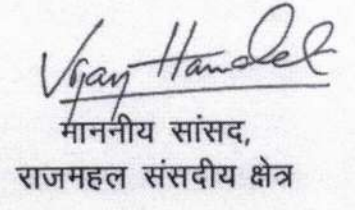 Vijay Hansdak
माननीय सांसद,
राजमहल संसदीय क्षेत्र